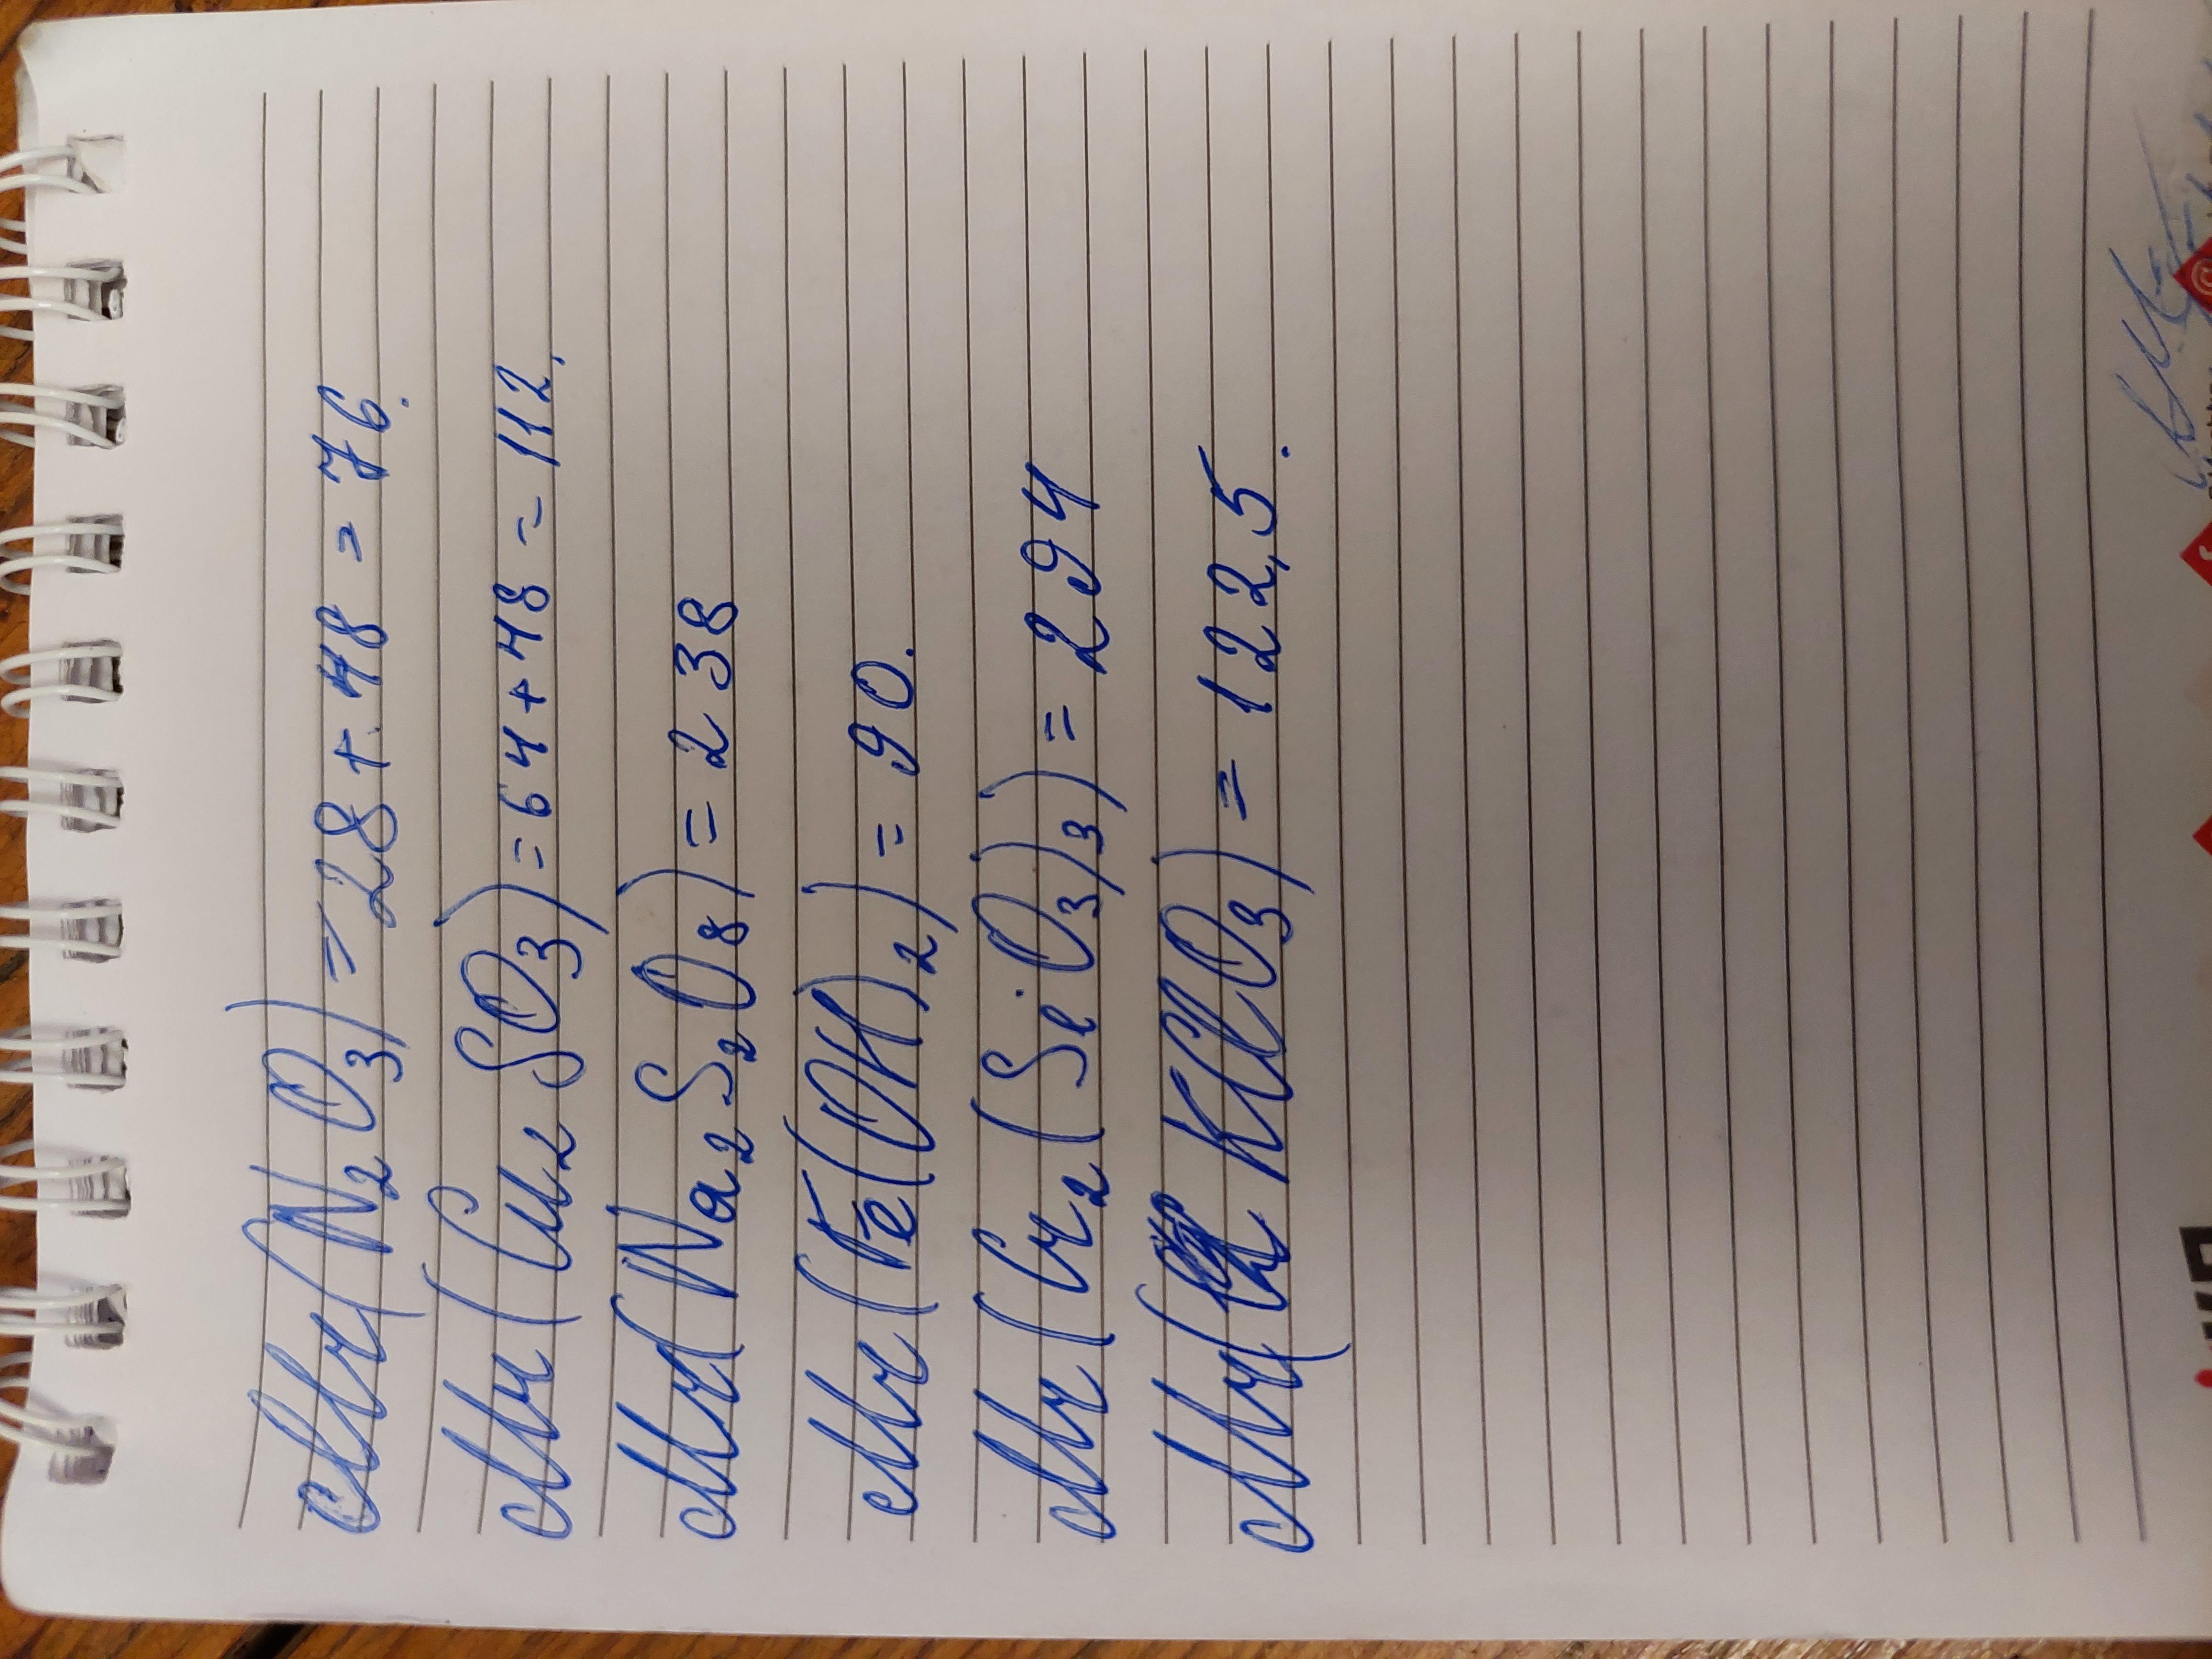 Mr(N₂O₃) = 28 + 48 = 76.
Mr(Cu₂SO₃) = 64 + 48 = 112.
Mr(Na₂S₂O₈) = 238
Mr(Fe(OH)₂) = 90.
Mr(Cr₂(SiO₃)₃) = 294
Mr(KClO₃) = 122,5.